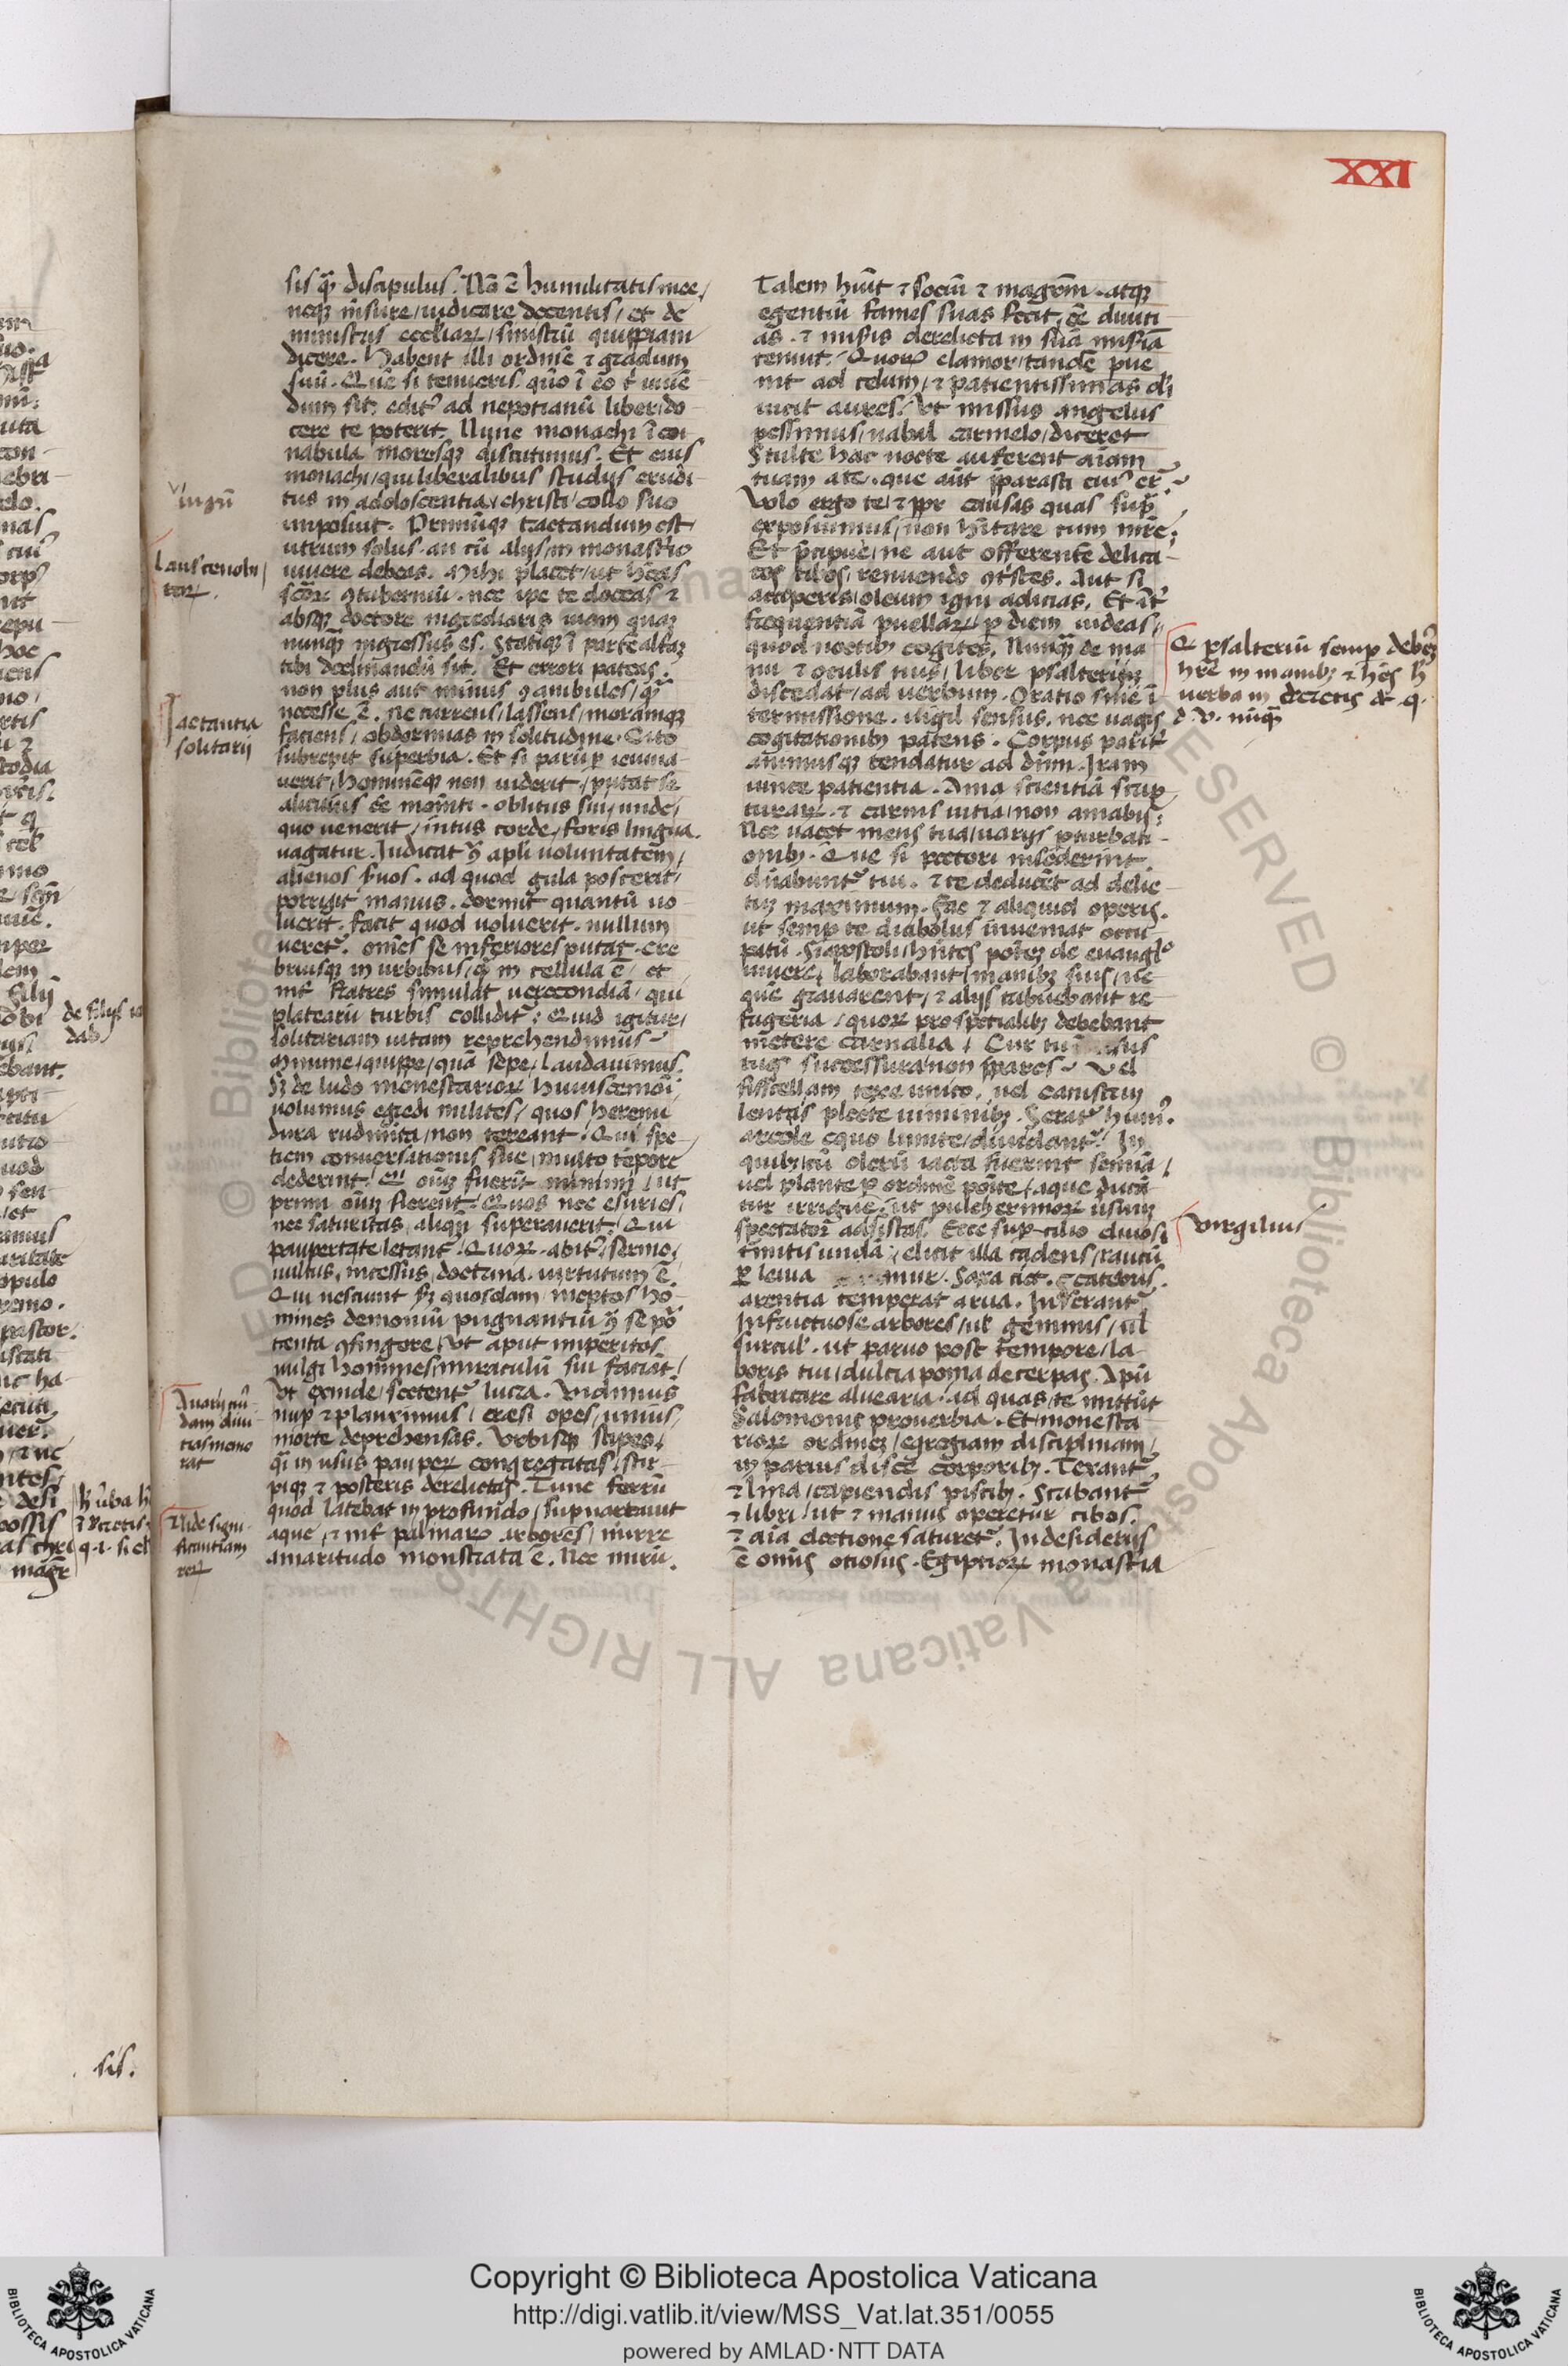 XXI
sis qͣ discipulus. Nō ē humilitatis mee,
neqꝫ mēsure, iudicare de ceteris, et de
ministris eccliaꝝ, sinistrū quippiam
dicere. Habent illi ordinē ⁊ gradum
suū. Quē si tenueris. quō ī eo t̄ uiuē-
dum sit. editꝰ ad nepotianū liber, do-
cere te poterit. Nunc monachi īcu-
nabula moresqꝫ discutimus. Et eius
monachi, qui liberalibus studijs erudi-
tus in adoloscentia, christi, collo suo
imposuit. Primūqꝫ tractandum est
utrum solus. an cū alijs, in monastio
uiuere debeas. Mihi placet, ut hēas
scōꝝ ꝯtuberniū. nec ipe te doceas ⁊
absqꝫ doctore ingrediaris uiam quaꝫ
nunqͣ ingressus es. Statiqꝫ ī partē alt̄aꝫ
tibi declinandū sit. Et errori pateas.
non plus aut minus ꝯambules, qͣ
necesse ē. ne currens, lasseris, moramqꝫ
faciens, obdormias in solitudine. Cito
subrepit superbia. Et si parūꝑ ieiuna-
uerit, hominēqꝫ non uiderit, putat se
alicuius ēe momēti. oblitus sui, unde,
quo uenerit, intus corde, foris lingua.
uagatur. Iudicat ꝯ apli uoluntatem,
alienos ẜuos. ad quod gula poscerit,
porrigit manus. dormit quantū uo-
luerit. facit quod uoluerit. nullum
ueretꝰ. omēs se inferiores putat. cre
briusqꝫ in urbibus, qͣ in cellula ē, et
int̄ fratres simulat uerecondiā, qui
platearū turbis colliditꝰ. Quid igitur,
solitariam uitam reprehendimus
Minime, quippe, quā sepe, laudauimus.
Sꝫ de ludo monestarioꝝ huiuscemōi
uolumus egredi milites, quos heremi
dura rudimēta, non terreant. Qui spe-
ciem conuersationis sue, multo tēpore
dederint. Qui oīuꝫ fuerūt minimi, ut
primi oīuꝫ fierent. Quos nec esuries,
nec saturitas aliqn̄ superauerit. Qui
paupertate letant̄. Quoꝝ. abitꝰ, sermo,
uultus, incessus, doctrina. uirtutum ē.
Qui nesciunt sꝫ quosdam, ineptos ho-
mines demoniū pugnantiū ꝯ se por-
tenta ꝯfingere, ut aput imperitos
uulgi homines, miraculū sui faciāt,
Ut exinde, sectentꝰ lucra. Vidimus
nuꝑ ⁊ planximus, cresi opes, unius,
morte deprehensas. Vrbisqꝫ stipes,
qͣ in usus pauperꝝ congregatas, stir-
piqꝫ ⁊ posteris derelictas. Tunc ferrū
quod latebat in profundo, supnatauit
aque, ⁊ int̄ palmarꝝ arbores, mirre
amaritudo monstrata ē. Nec mirū.
Talem huit ⁊ sociū ⁊ magrm̄. atqꝫ
egentiū fames suas fecit, ēe diuiti
as. ⁊ misis derelicta in suā misiā
tenuit. Quoꝝ clamor, tandē pue
nit ad celum, ⁊ patientissimas di
uicit aures. Vt missus angelus
pessimus, nabal carmelo, diceret
Stulte hac nocte auferent aiam
tuam a te. que aūt pparasti cuiꝰ ert̄
Volo ergo te, ⁊ ppr causas quas supͣ
exposuimus, non hītare cum mr̄e.
Et p̄cipue, ne aut offerentē delica-
tos cibos, renuendo ꝯtstes. Aut si
acceperis, oleum igni adicias. Et int̄
frequentiā puellaꝝ, ꝑ diem uideas,
quod noctibꝫ cogites. Nunqͣ de ma
nu ⁊ oculis tuis, liber psalteriuꝫ
discedat, ad uerbum. Oratio sine ī-
termissione. uigil sensus. nec uagis
cogitationibꝫ patens. Corpus paritꝰ
animusqꝫ tendatur ad dn̄m. Iram
uince patientia. Ama scientiā scrip-
turaꝝ. ⁊ carnis uitia, non amabis.
Nec uacet mens tua, uarijs ꝑturbati-
onibꝫ. Que si pectori insederint
dn̄abuntꝰ tui. ⁊ te deducēt ad delic-
tuꝫ maximum. Fac ⁊ aliquid operis.
ut semꝑ te diabolus inueniat occu-
patū. Si apostoli, hn̄tes potes de euangl̄o
uiuere, laborabant, manibꝫ suis, ne
quē grauarent, ⁊ alijs tribuebant re-
frigeria, quoꝝ pro spetialibꝫ debebant
metere carnalia, Cur tu in usus
tuos successura, non ppares. Vel
fiscellam texe iunco, uel canistrum
lentis plecte uiminibꝫ. Seratꝰ humꝰ.
areole equo limite, diuidantꝰ. In
quibꝫ, cū olerū iacta fuerint semīa,
uel plante ꝑ ordinē posite, aque ducāt
tur irrigue, ut pulcherrimoꝝ usuuꝫ
spectator adsistas. Ecce suꝑcilio cliuosi
tramitis undā, elicit illa cadens, raucū
ꝑ leuia murmur. Saxa ciet. scatebris.
arentia temperat arua. Inserantꝰ
Infructuose arbores, uł gemmis, uł
surculꝰ. ut paruo post tempore, la-
boris tui, dulcia poma decerpas. Apū
fabricare aluearia. ad quas, te mittūt
Salomonis prouerbia. Et monesta-
rioꝝ ordinē, ⁊ regiam disciplinam,
in paruis disce corporibꝫ. Texantꝰ
⁊ lina, capiendis piscibꝫ. Scribantꝰ
⁊ libri, ut ⁊ manus operetur cibos.
⁊ aia lectione saturetꝰ. In desiderijs
ē omīs otiosus. Egiptioꝝ monastia
Laus cenobi
toꝝ.
Iactantia
solitarij
Auari cuiꝰ
dam diui-
tias mona
rat
Vide signi-
ficantiam
reꝝ
Q psalteriū semꝑ debeꝫ
hr̄e in manibꝫ ⁊ hēs h
uerba in decretis
d. v. nūqͣ
Virgilius
de filijs
sis.
Copyright © Biblioteca Apostolica Vaticana
http://digi.vatlib.it/view/MSS_Vat.lat.351/0055
powered by AMLAD·NTT DATA
BIBLIOTECA APOSTOLICA VATICANA
BIBLIOTECA APOSTOLICA VATICANA
© Biblioteca Apostolica Vaticana ALL RIGHTS RESERVED © Biblioteca Apostolica Vaticana